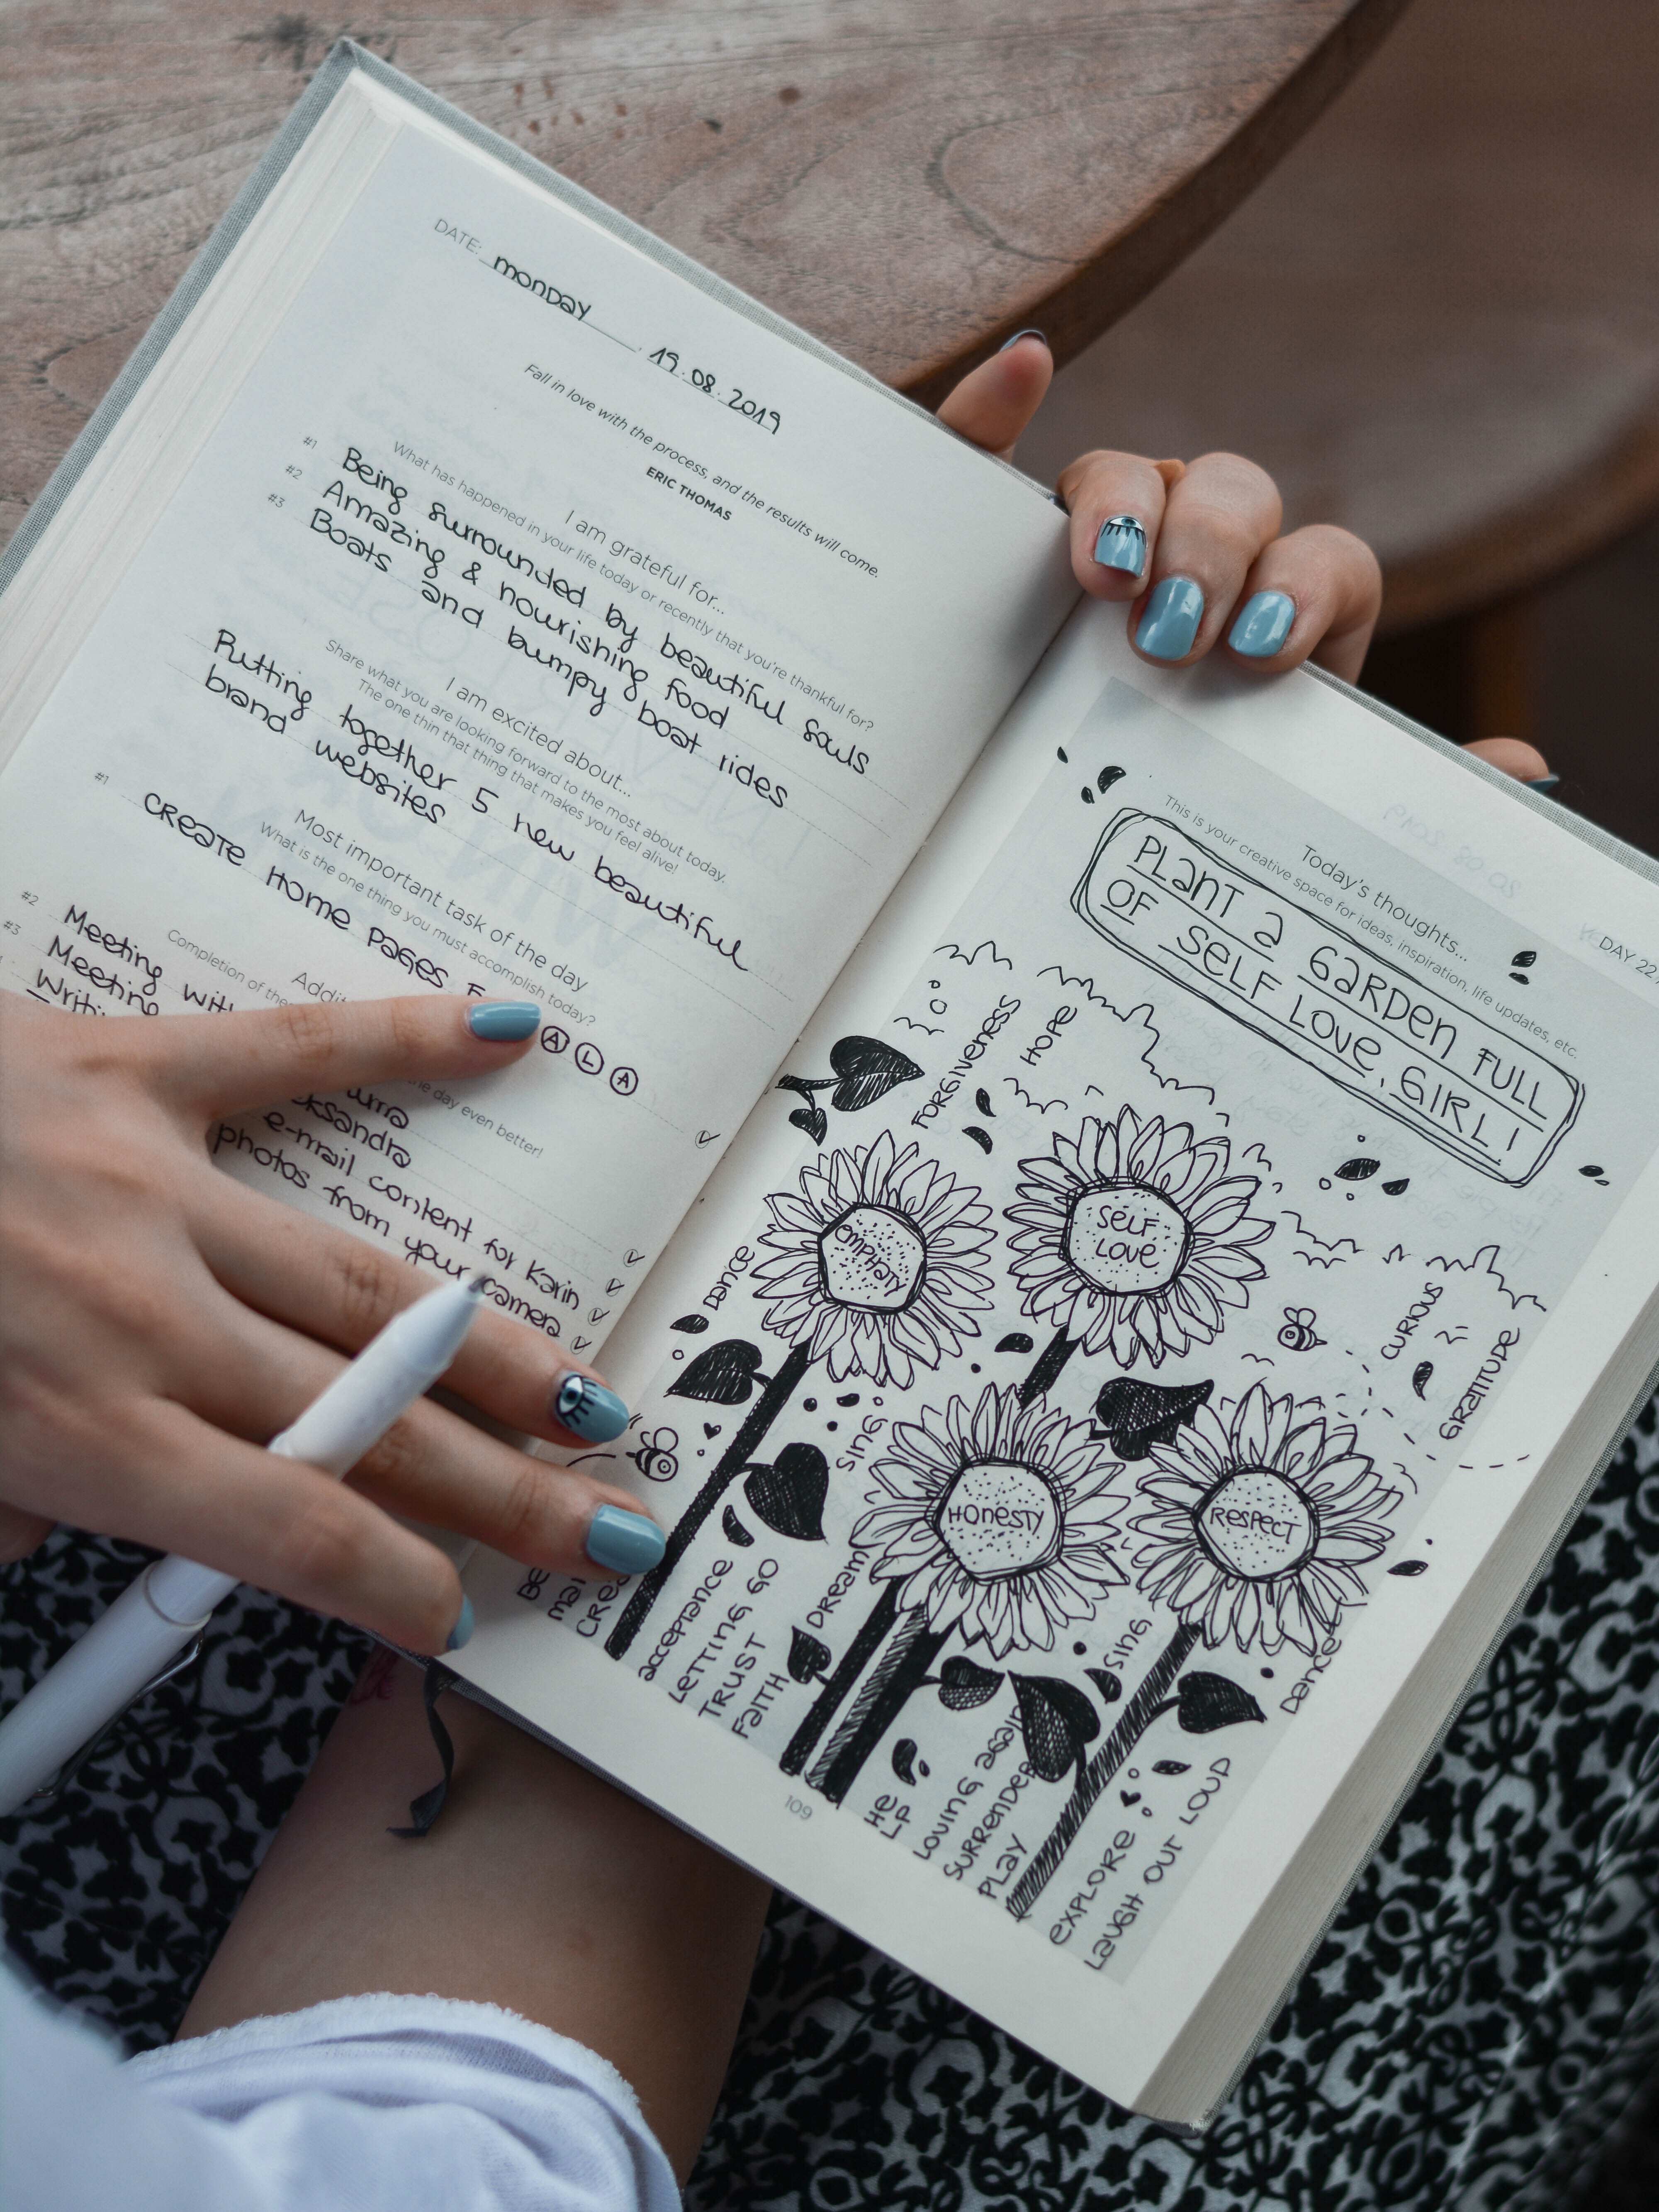 DATE: monday . 19.08.2019
Fall in love with the process, and the results will come.
ERIC THOMAS
I am grateful for...
What has happened in your life today or recently that you're thankful for?
#1 Being surrounded by beautiful souls
#2 Amazing & nourishing food
#3 Boats and bumpy boat rides
I am excited about...
Share what you are looking forward to the most about today.
The one thin that thing that makes you feel alive!
Putting together 5 new beautiful
brand websites
Most important task of the day
What is the one thing you must accomplish today?
#1 CREATE HOME PAGES A L A
Completion of the
the day even better!
#2 Meeting
#3 Meeting
e-mail content for Karin
photos from your camera
DAY 22
Today's thoughts...
This is your creative space for ideas, inspiration, life updates, etc.
PLANT A GARDEN FULL
OF SELF LOVE, GIRL!
FORGIVENESS
HOPE
EMPHATY
SELF
LOVE
DANCE
CURIOUS
GRATITUDE
SING
HONESTY
RESPECT
ACCEPTANCE
LETTING GO
TRUST
FAITH
DREAM
SING
DANCE
HE
LP
LOVING AGAIN
SURRENDER
PLAY
EXPLORE
LAUGH OUT LOUD
109